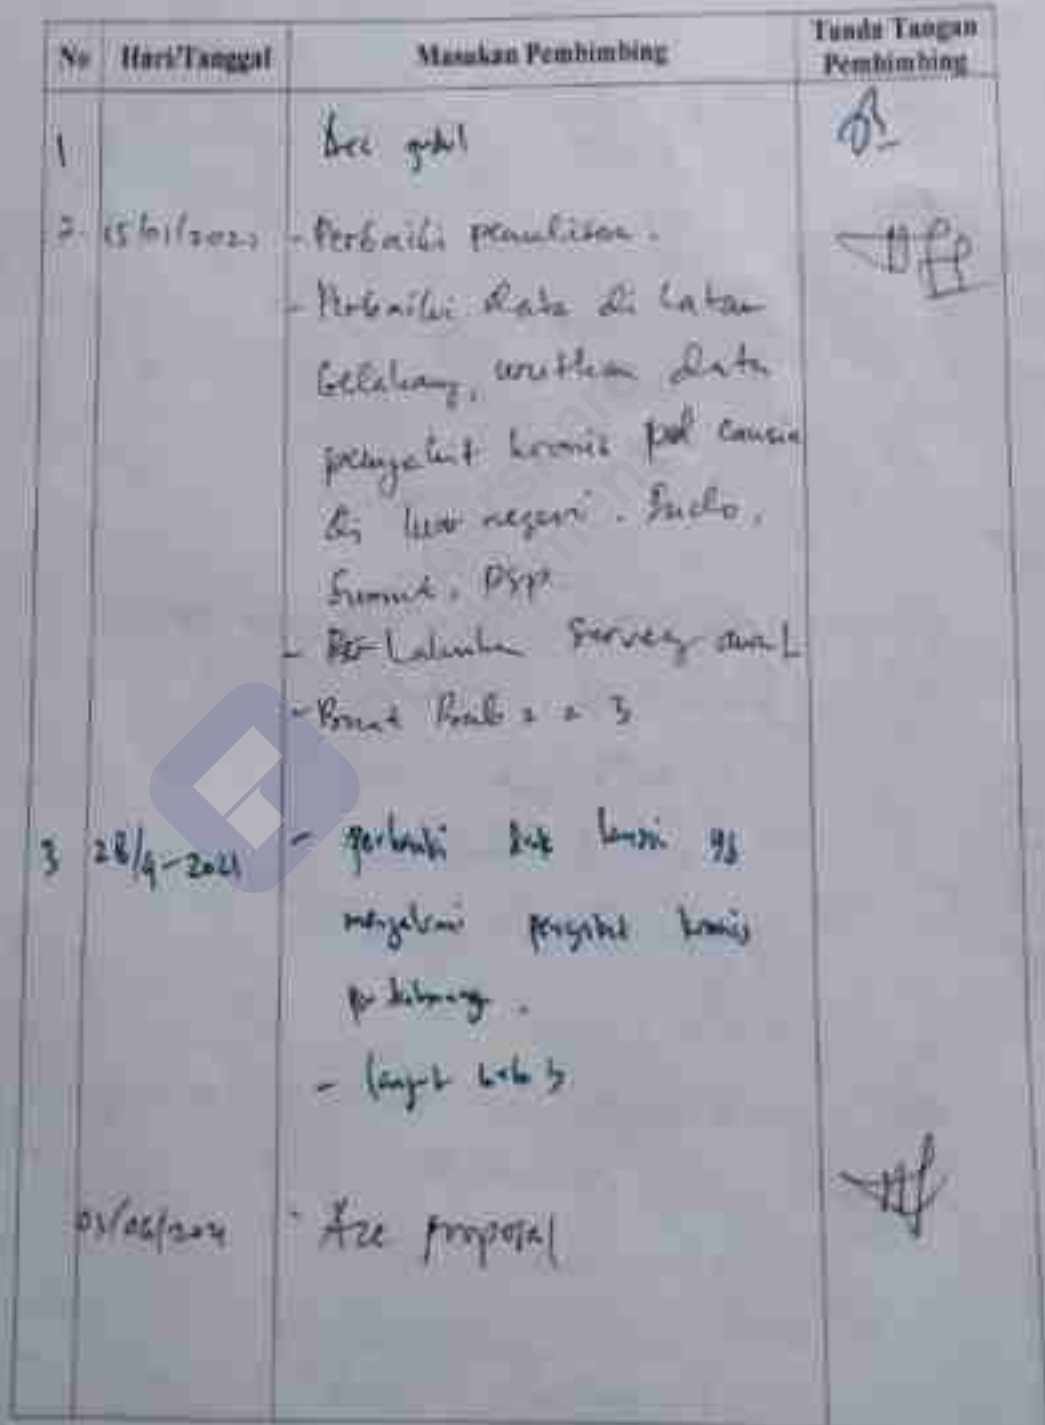 No Hari/Tanggal Masukan Pembimbing Tanda Tangan Pembimbing
1 Acc judul
2. 15/01/202 - Perbaiki penulisan.
- Perbaiki data di Latar
belakang, urutkan data
penyakit kronis pd Lansia
di luar negeri. Indo,
Sumut, PSP
- Lakukan Survey awal
- Buat Bab 2 3
3 28/4-2021 - perbaiki lansia yg
mengalami penyakit kronis
- lanjut bab 3
03/06/2021 - Acc proposal